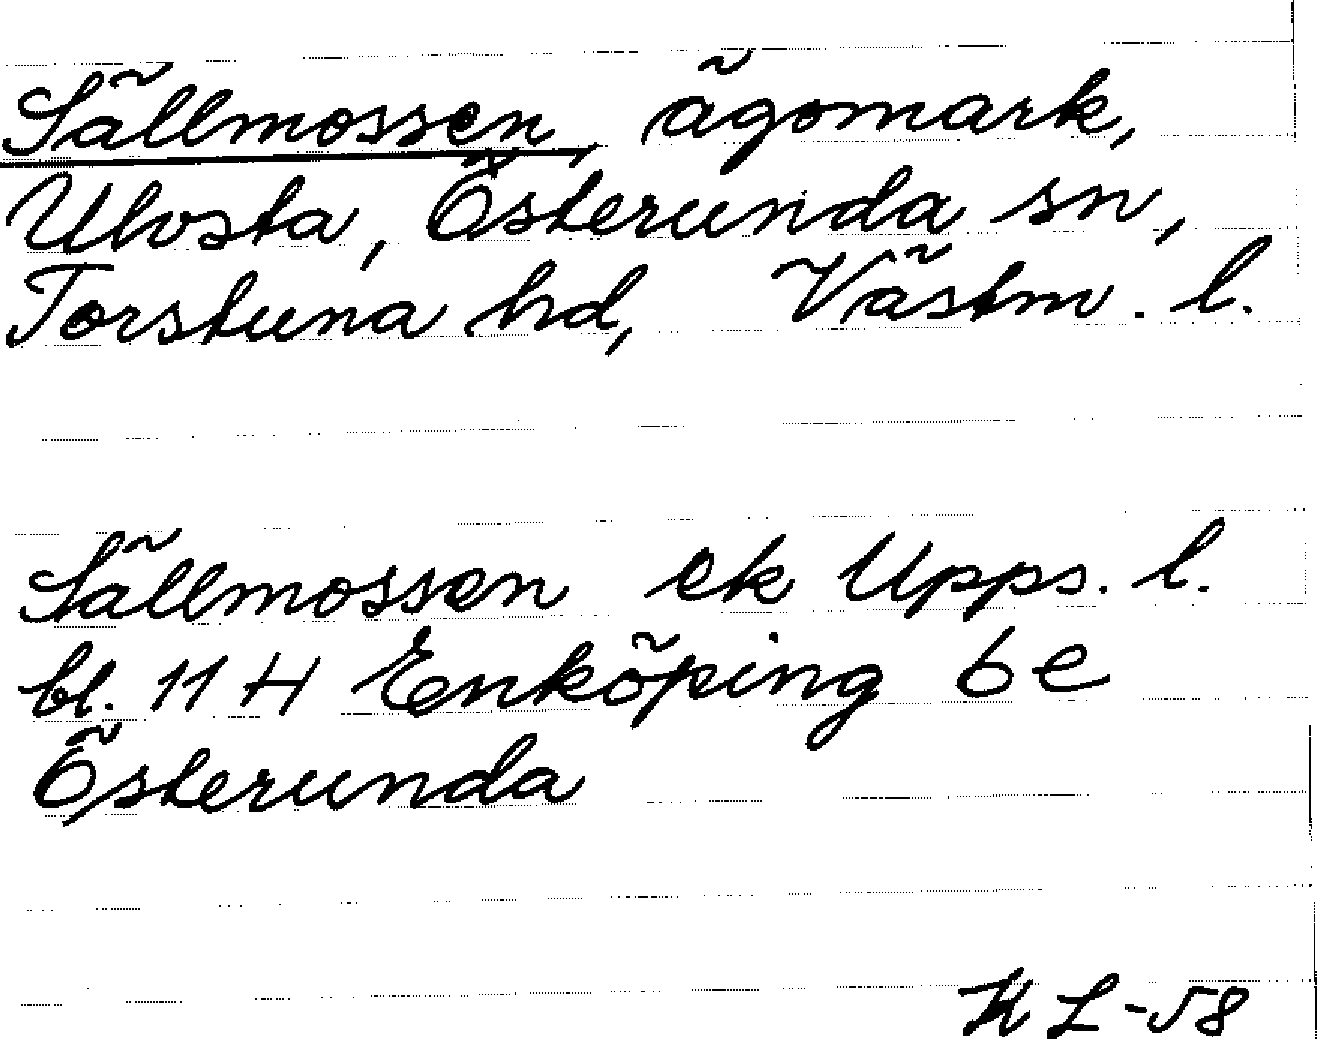 Sällmossen, ägomark,
Ulvsta, Österunda sn,
Torstuna hd, Västm. l.
Sällmossen ek Upps. l.
bl. 11 H Enköping 6 e
Österunda
H L-58